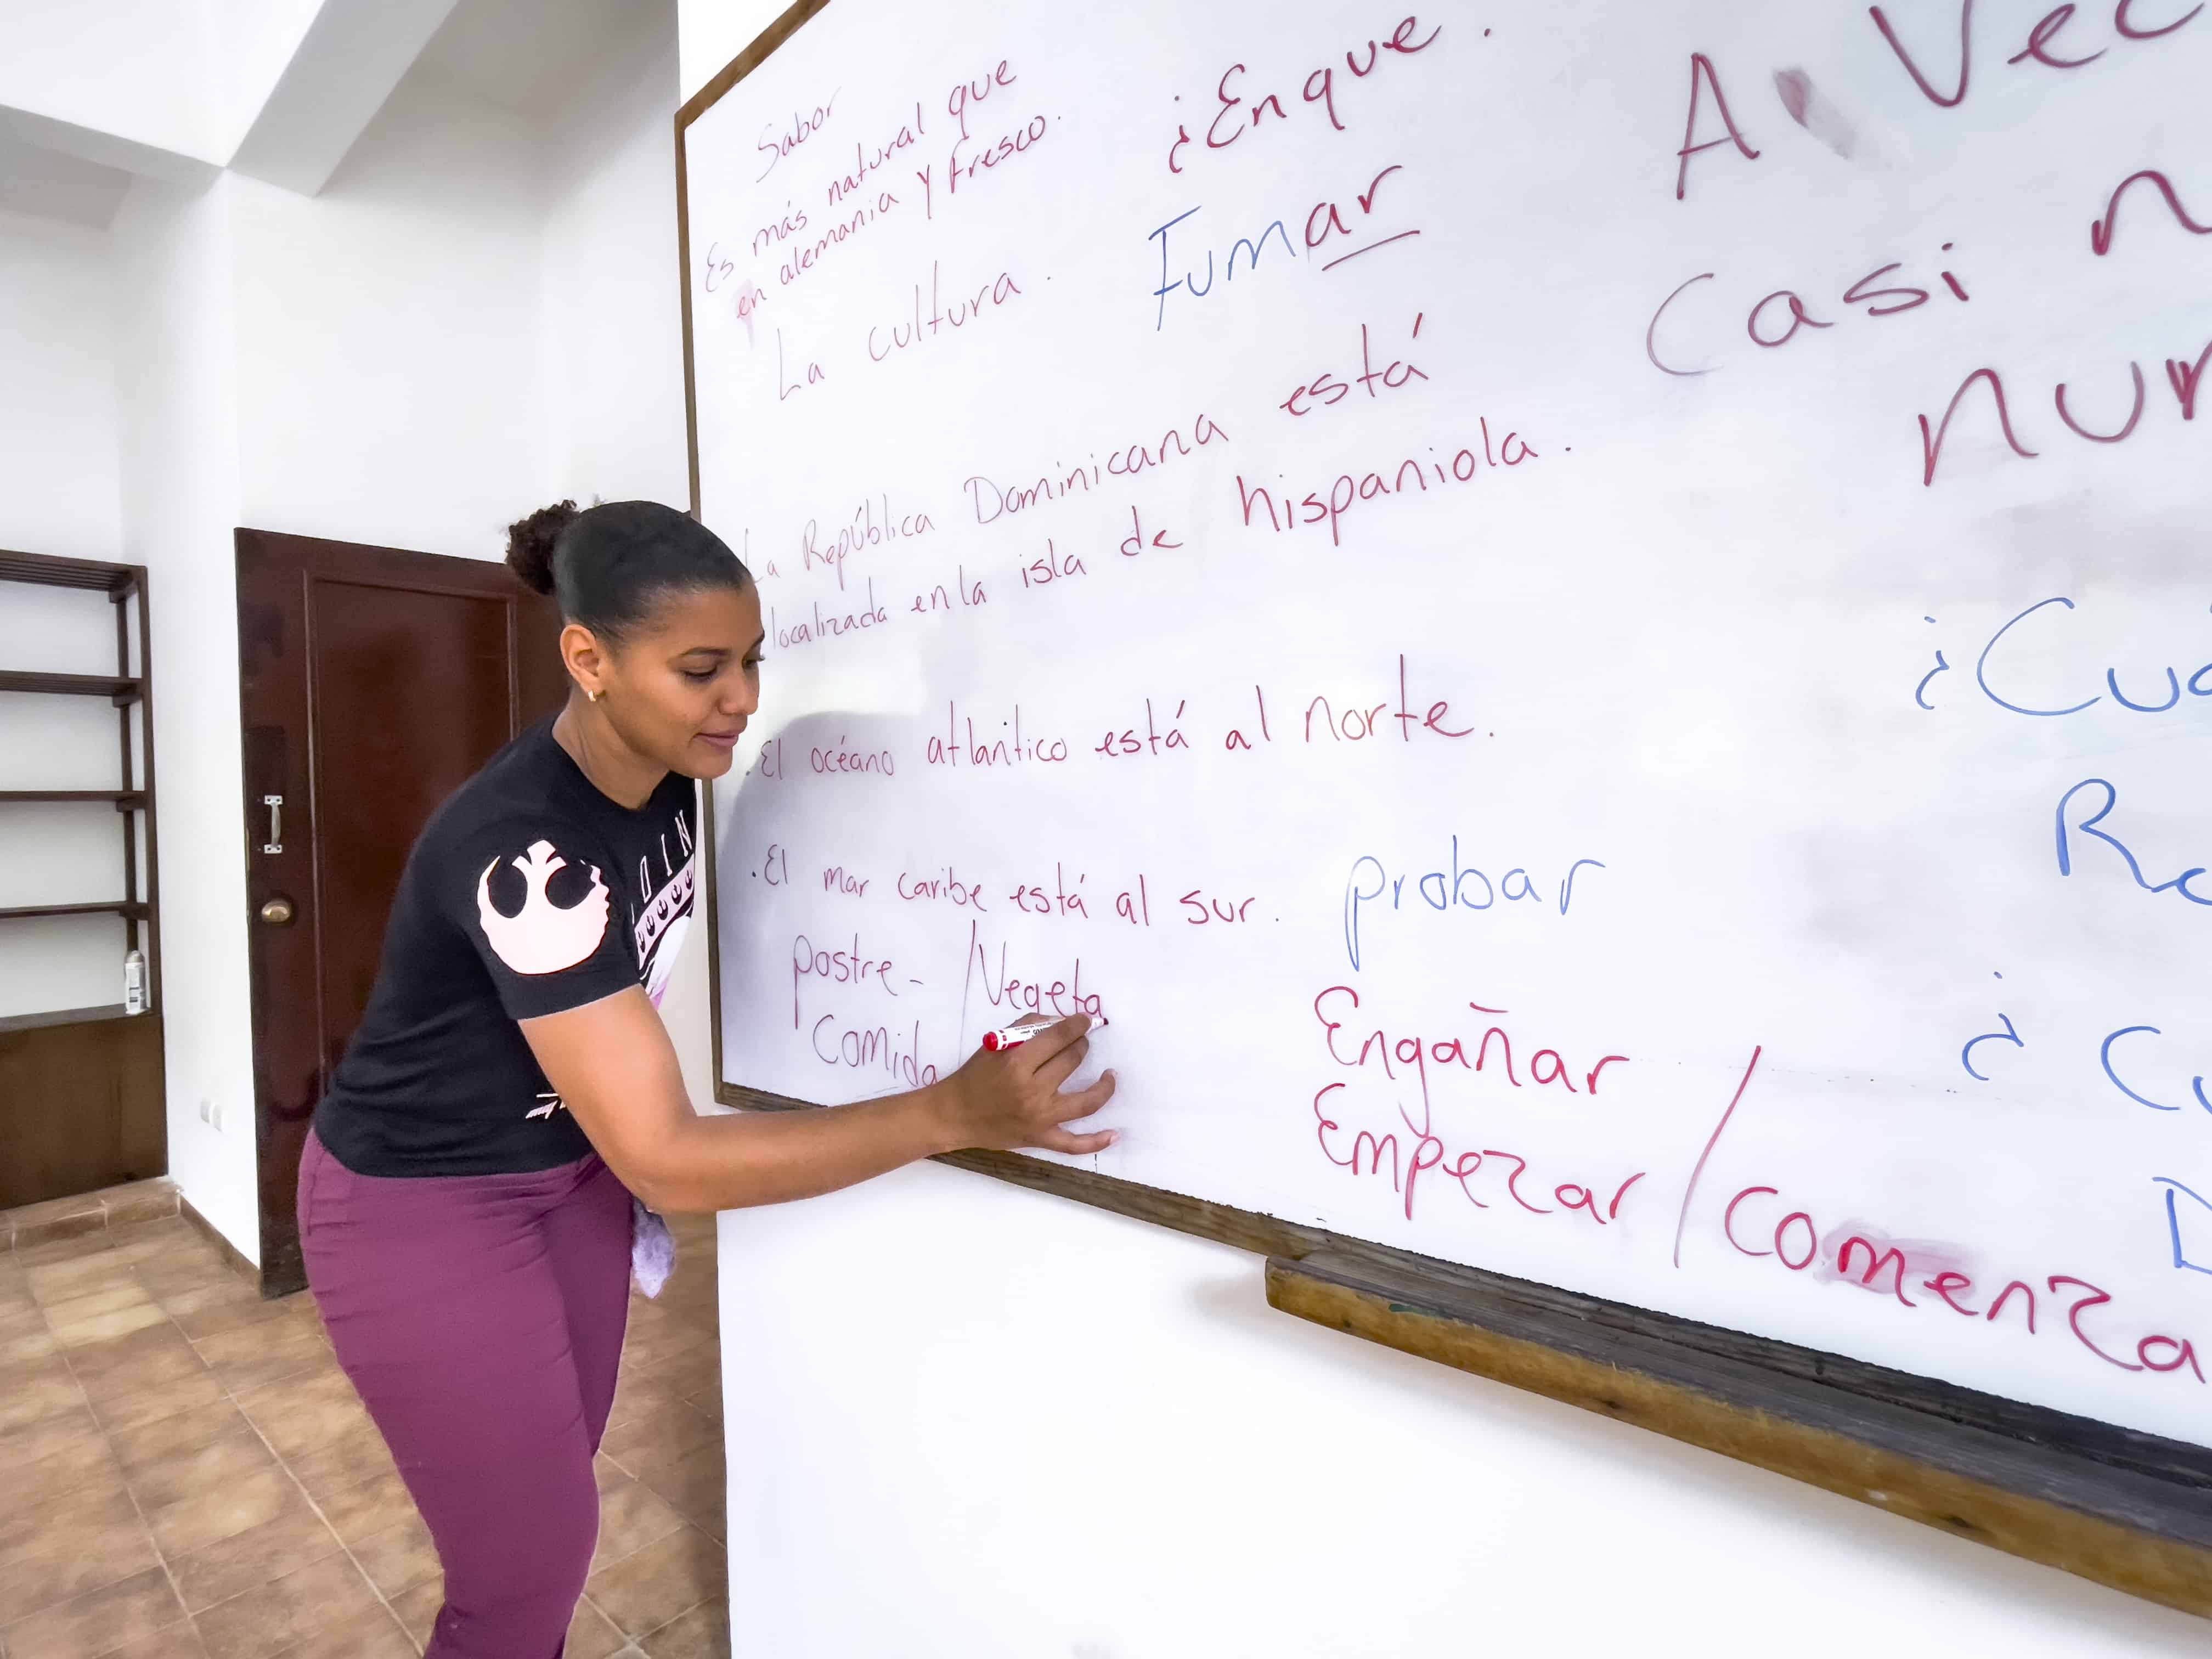 Sabor
Es más natural que
en alemania y fresco.
La cultura.
¿Enque.
Fumar
La República Dominicana está
localizada en la isla de hispaniola.
.El océano atlantico está al norte.
.El mar caribe está al sur.
postre-
comida
/Vegeta
probar
Engañar
Empezar / Comenza
A Vec
Casi n
nun
¿Cuá
¿Cu
JOIN